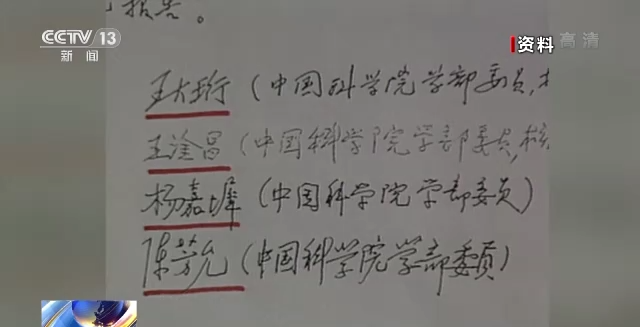 报告。
CCTV 13
新闻
资料 高清
王大珩（中国科学院学部委员,
王淦昌（中国科学院学部委员,核
杨嘉墀（中国科学院学部委员）
陈芳允（中国科学院学部委员）